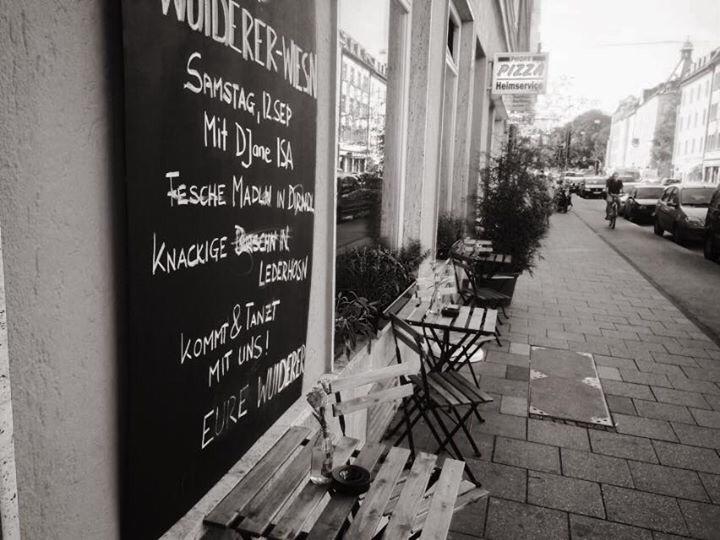 WUIDERER-WIESN
SAMSTAG, 12. SEP
MIT DJane ISA
FESCHE MADLN IN DIRNDL
KNACKIGE BURSCHN IN
LEDERHOSN
KOMMT & TANZT
MIT UNS!
EURE WUIDERER
PIZZA
Heimservice